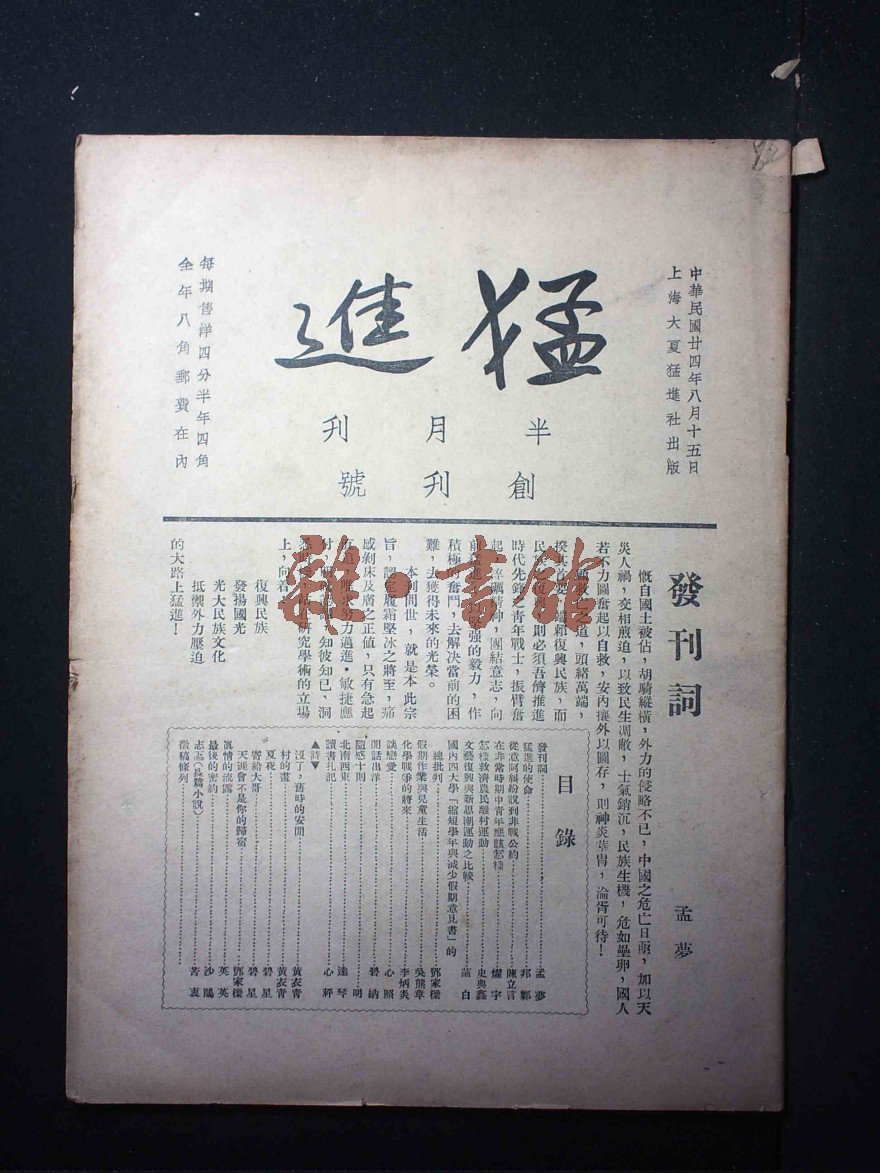 中華民國廿四年八月十五日
上海大夏猛進社出版
猛進
半月刊
創刊號
每期售洋四分半年四角
全年八角郵費在內
發刊詞
孟夢
慨自國土被佔,胡騎縱橫,外力的侵略不已,中國之危亡日亟,加以天
災人禍,交相煎迫,以致民生凋敝,士氣銷沉,民族生機,危如壘卵,國人
若不力圖奮起以自救,安內攘外以圖存,則神炎華胄,淪胥可待!
救亡之道,頭緒萬端,
復興民族,而
則必須吾儕推進
時代先鋒之青年戰士,振臂奮
起,團結意志,向
堅强的毅力,作
積極的奮鬥,去解決當前的困
難,去獲得未來的光榮。
本刊問世,就是本此宗
旨,認定履霜堅冰之將至,痛
感剝床及膚之正值,只有急起
力邁進・敏捷應
知彼知已,洞
研究學術的立場
上,向着
復興民族
發揚國光
光大民族文化
抵禦外力壓迫
的大路上猛進!
目錄
發刊詞……孟夢
猛進的使命……邦鄴
從意阿糾紛說到非戰公約……陳立言
在非常時期中青年應該怎樣……燿宇
怎樣救濟農民離村運動……史典鑫
文藝復興與新思潮運動之比較……萬白
國內四大學「縮短學年與減少假期意見書」的
總批判……鄧家樑
假期作業與兒童生活……吳熊章
化學戰爭的將來……李炳炎
談戀愛……心照
閒話出洋……碧納
隨感十則……明
北南西東……達琴
讀書扎記……心秤
▲詩▼
沒了,舊時的安閒……黃衣青
村的畫……黃衣青
夏夜……碧星
寄給大哥……碧星
天涯會不是你的歸宿……鄧家樑
眞情的流露……英英
最後的密約……沙鷗
志志(長篇小說)……苦衷
徵稿條列……
雜・書館